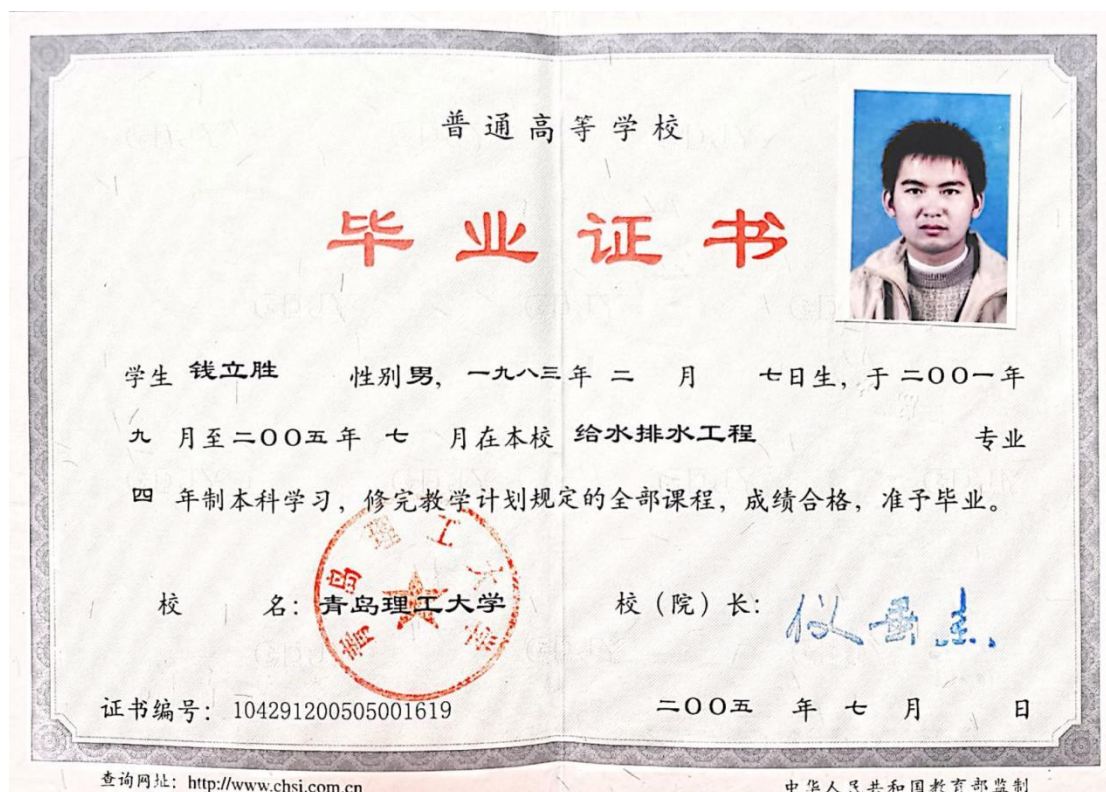 普通高等学校
毕业证书
学生 钱立胜 性别男，一九八三年 二 月 七日生，于二〇〇一年
九 月至二〇〇五年 七 月在本校 给水排水工程 专业
四 年制本科学习，修完教学计划规定的全部课程，成绩合格，准予毕业。
青岛理工大学
校 名：青岛理工大学 校（院）长：
证书编号：104291200505001619 二〇〇五 年 七 月 日
查询网址：http://www.chsi.com.cn 中华人民共和国教育部监制